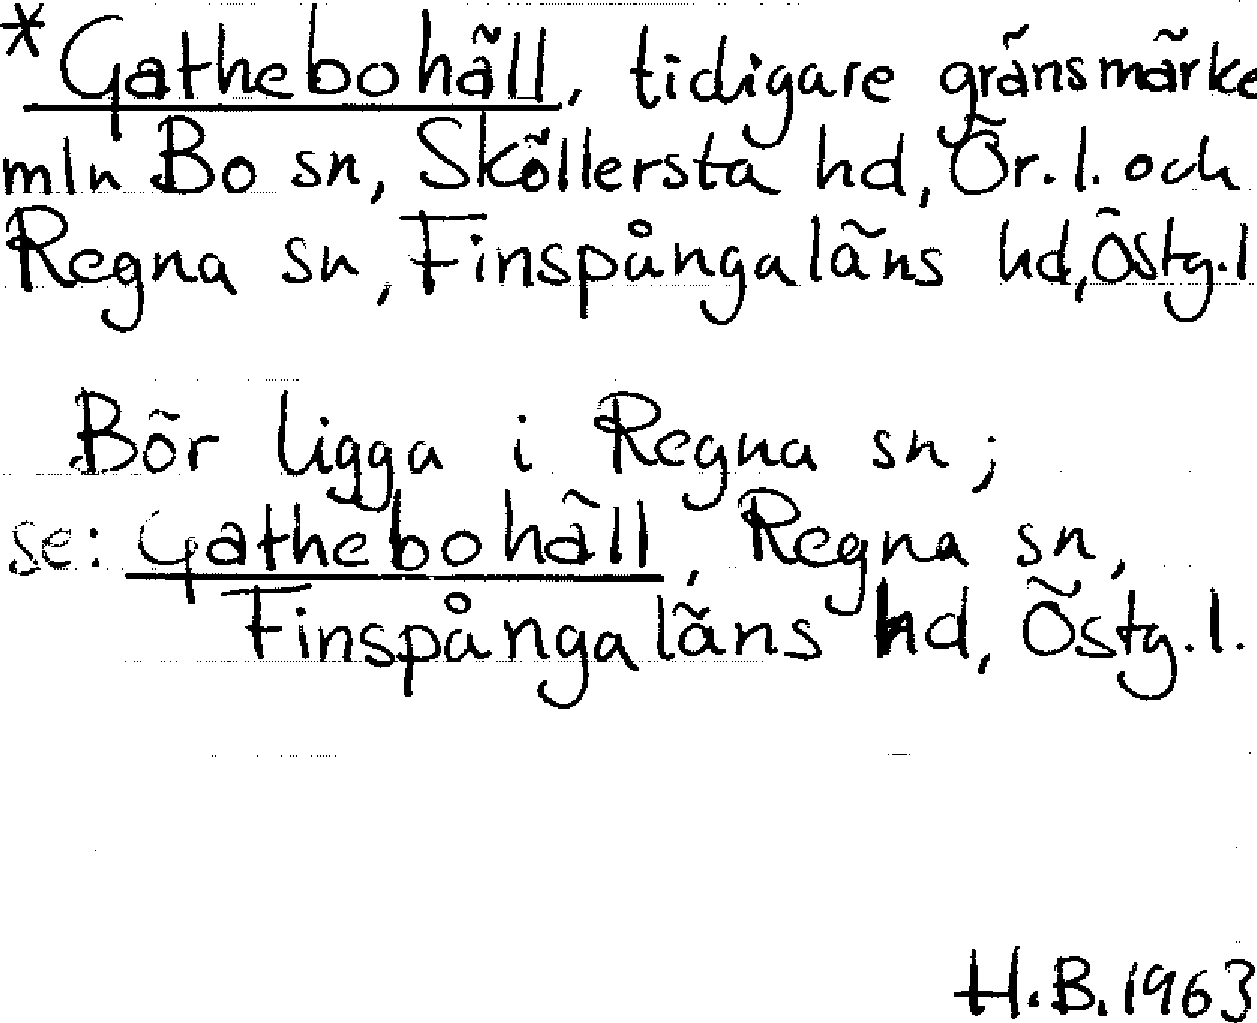 *Gathebohäll, tidigare gränsmärke
mln Bo sn, Sköllersta hd, Ör.l. och
Regna sn, Finspångaläns hd, Östg.l
Bör ligga i Regna sn;
se: Gathebohäll, Regna sn,
Finspångaläns hd, Östg.l.
H.B. 1963